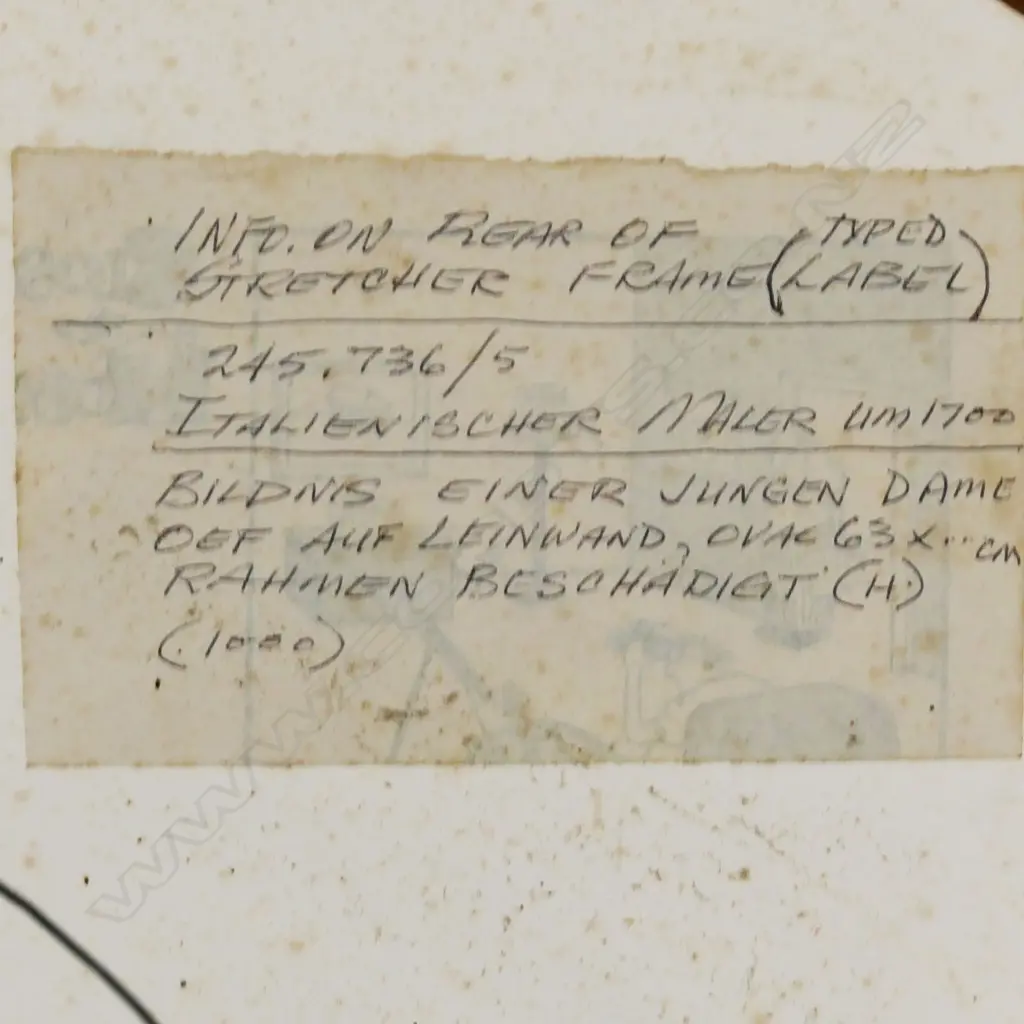 INFO. ON REAR OF (TYPED
STRETCHER FRAME LABEL)
245.736/5
ITALIENISCHER MALER UM 1700
BILDNIS EINER JUNGEN DAME
OEF AUF LEINWAND, OVAL 63 x ... cm
RAHMEN BESCHÄDIGT (H)
(.1000)